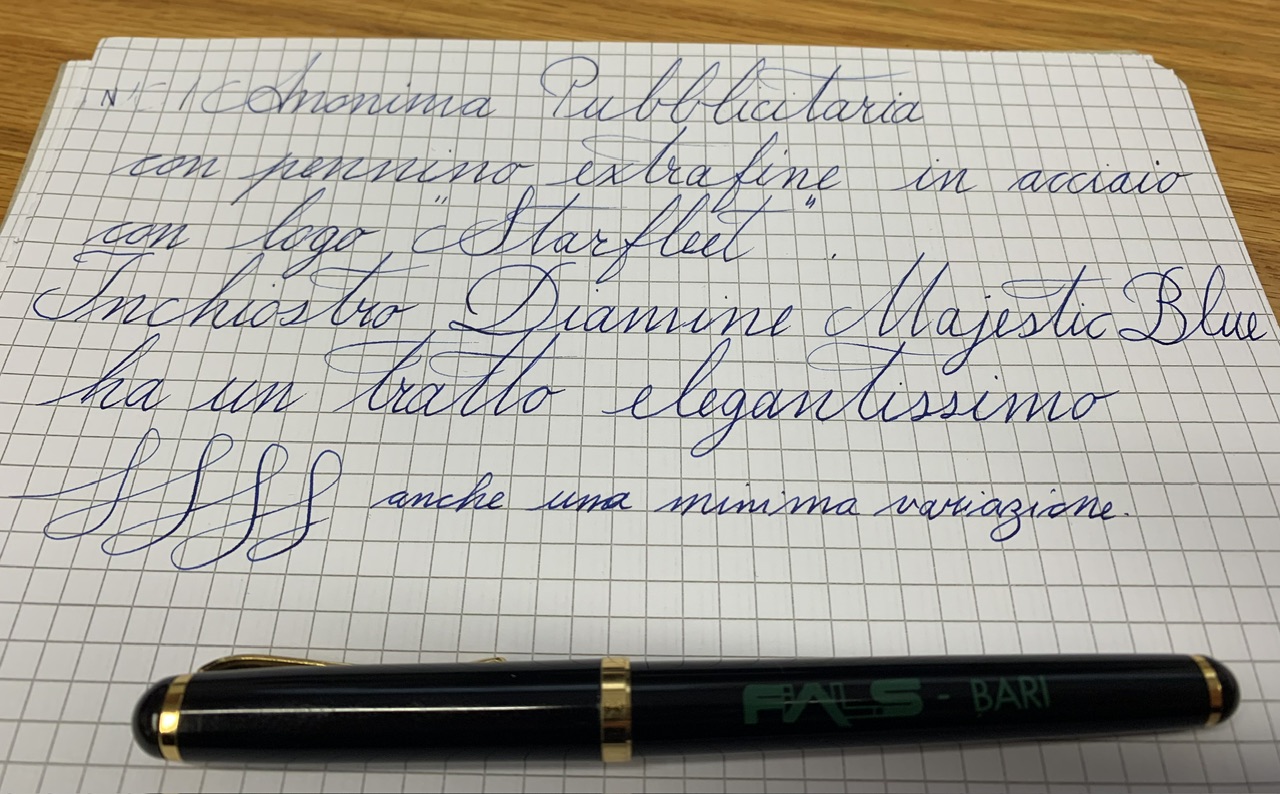 Anonima Pubblicitaria
con pennino extrafine in acciaio
con logo "Starfleet".
Inchiostro Diamine Majestic Blue
ha un tratto elegantissimo
anche una minima variazione.
FIALS - BARI